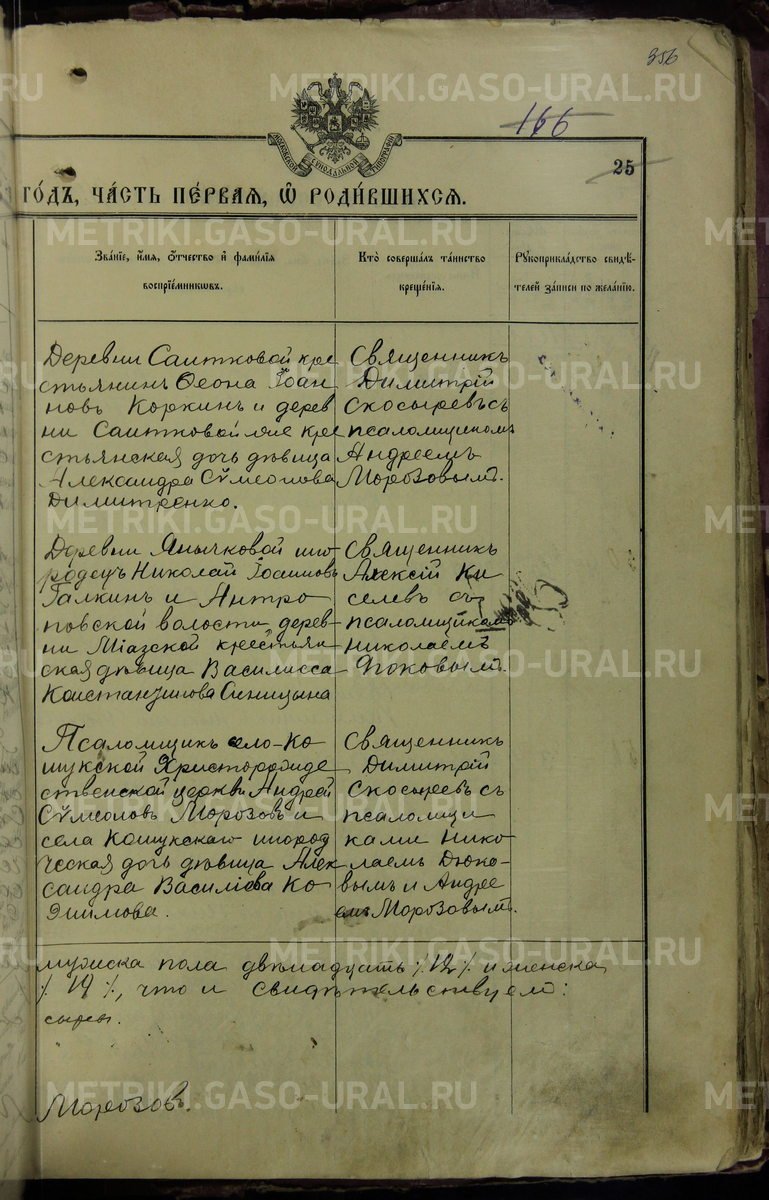 356
166
МОСКОВСКОЙ СѴНОДАЛЬНОЙ ТИПОГРАФІИ
25
ГО́ДЪ, ЧА́СТЬ ПЕ́РВАЯ, Ѡ҆ РОДИ́ВШИХСЯ.
Зва́ніе, и҆́мя, ѻ҆́тчество и҆ фами́лія
воспріе́мникѡвъ.
Кто̀ соверша́лъ та́инство
креще́нія.
Рꙋкоприкла́дство свидѣ́-
телей за́писи по жела́нію.
Деревни Саитковой кре
стьянинъ Ѳеона Іоан
новъ Коркинъ и дерев
ни Саитковой же кре
стьянская дочь дѣвица
Александра Сѵмеонова
Димитренко.
Священникъ
Димитрій
Скосыревъ съ
псаломщикомъ
Андреемъ
Морозовымъ.
Деревни Янычковой ино
родецъ Николай Іоанновъ
Галкинъ и Антро
повской волости дерев
ни Міазской крестьян
ская дѣвица Василисса
Константинова Синицына
Священникъ
Алексій Ки
селевъ съ
псаломщикомъ
Николаемъ
Дюковымъ.
Псаломщикъ село-Ко
шукской Христорожде
ственской церкви Андрей
Сѵмеоновъ Морозовъ и
села Кошукскаго инород
ческая дочь дѣвица Алек
сандра Василіева Ко
Священникъ
Димитрій
Скосыревъ съ
псаломщи
ками Нико
лаемъ Дюко-
вымъ и Андре
емъ Морозовымъ.
мужска пола двѣнадцать /12/ и женска
/19/, что и свидѣтельствуемъ:
сыревъ.
Морозовъ.
METRIKI.GASO-URAL.RU